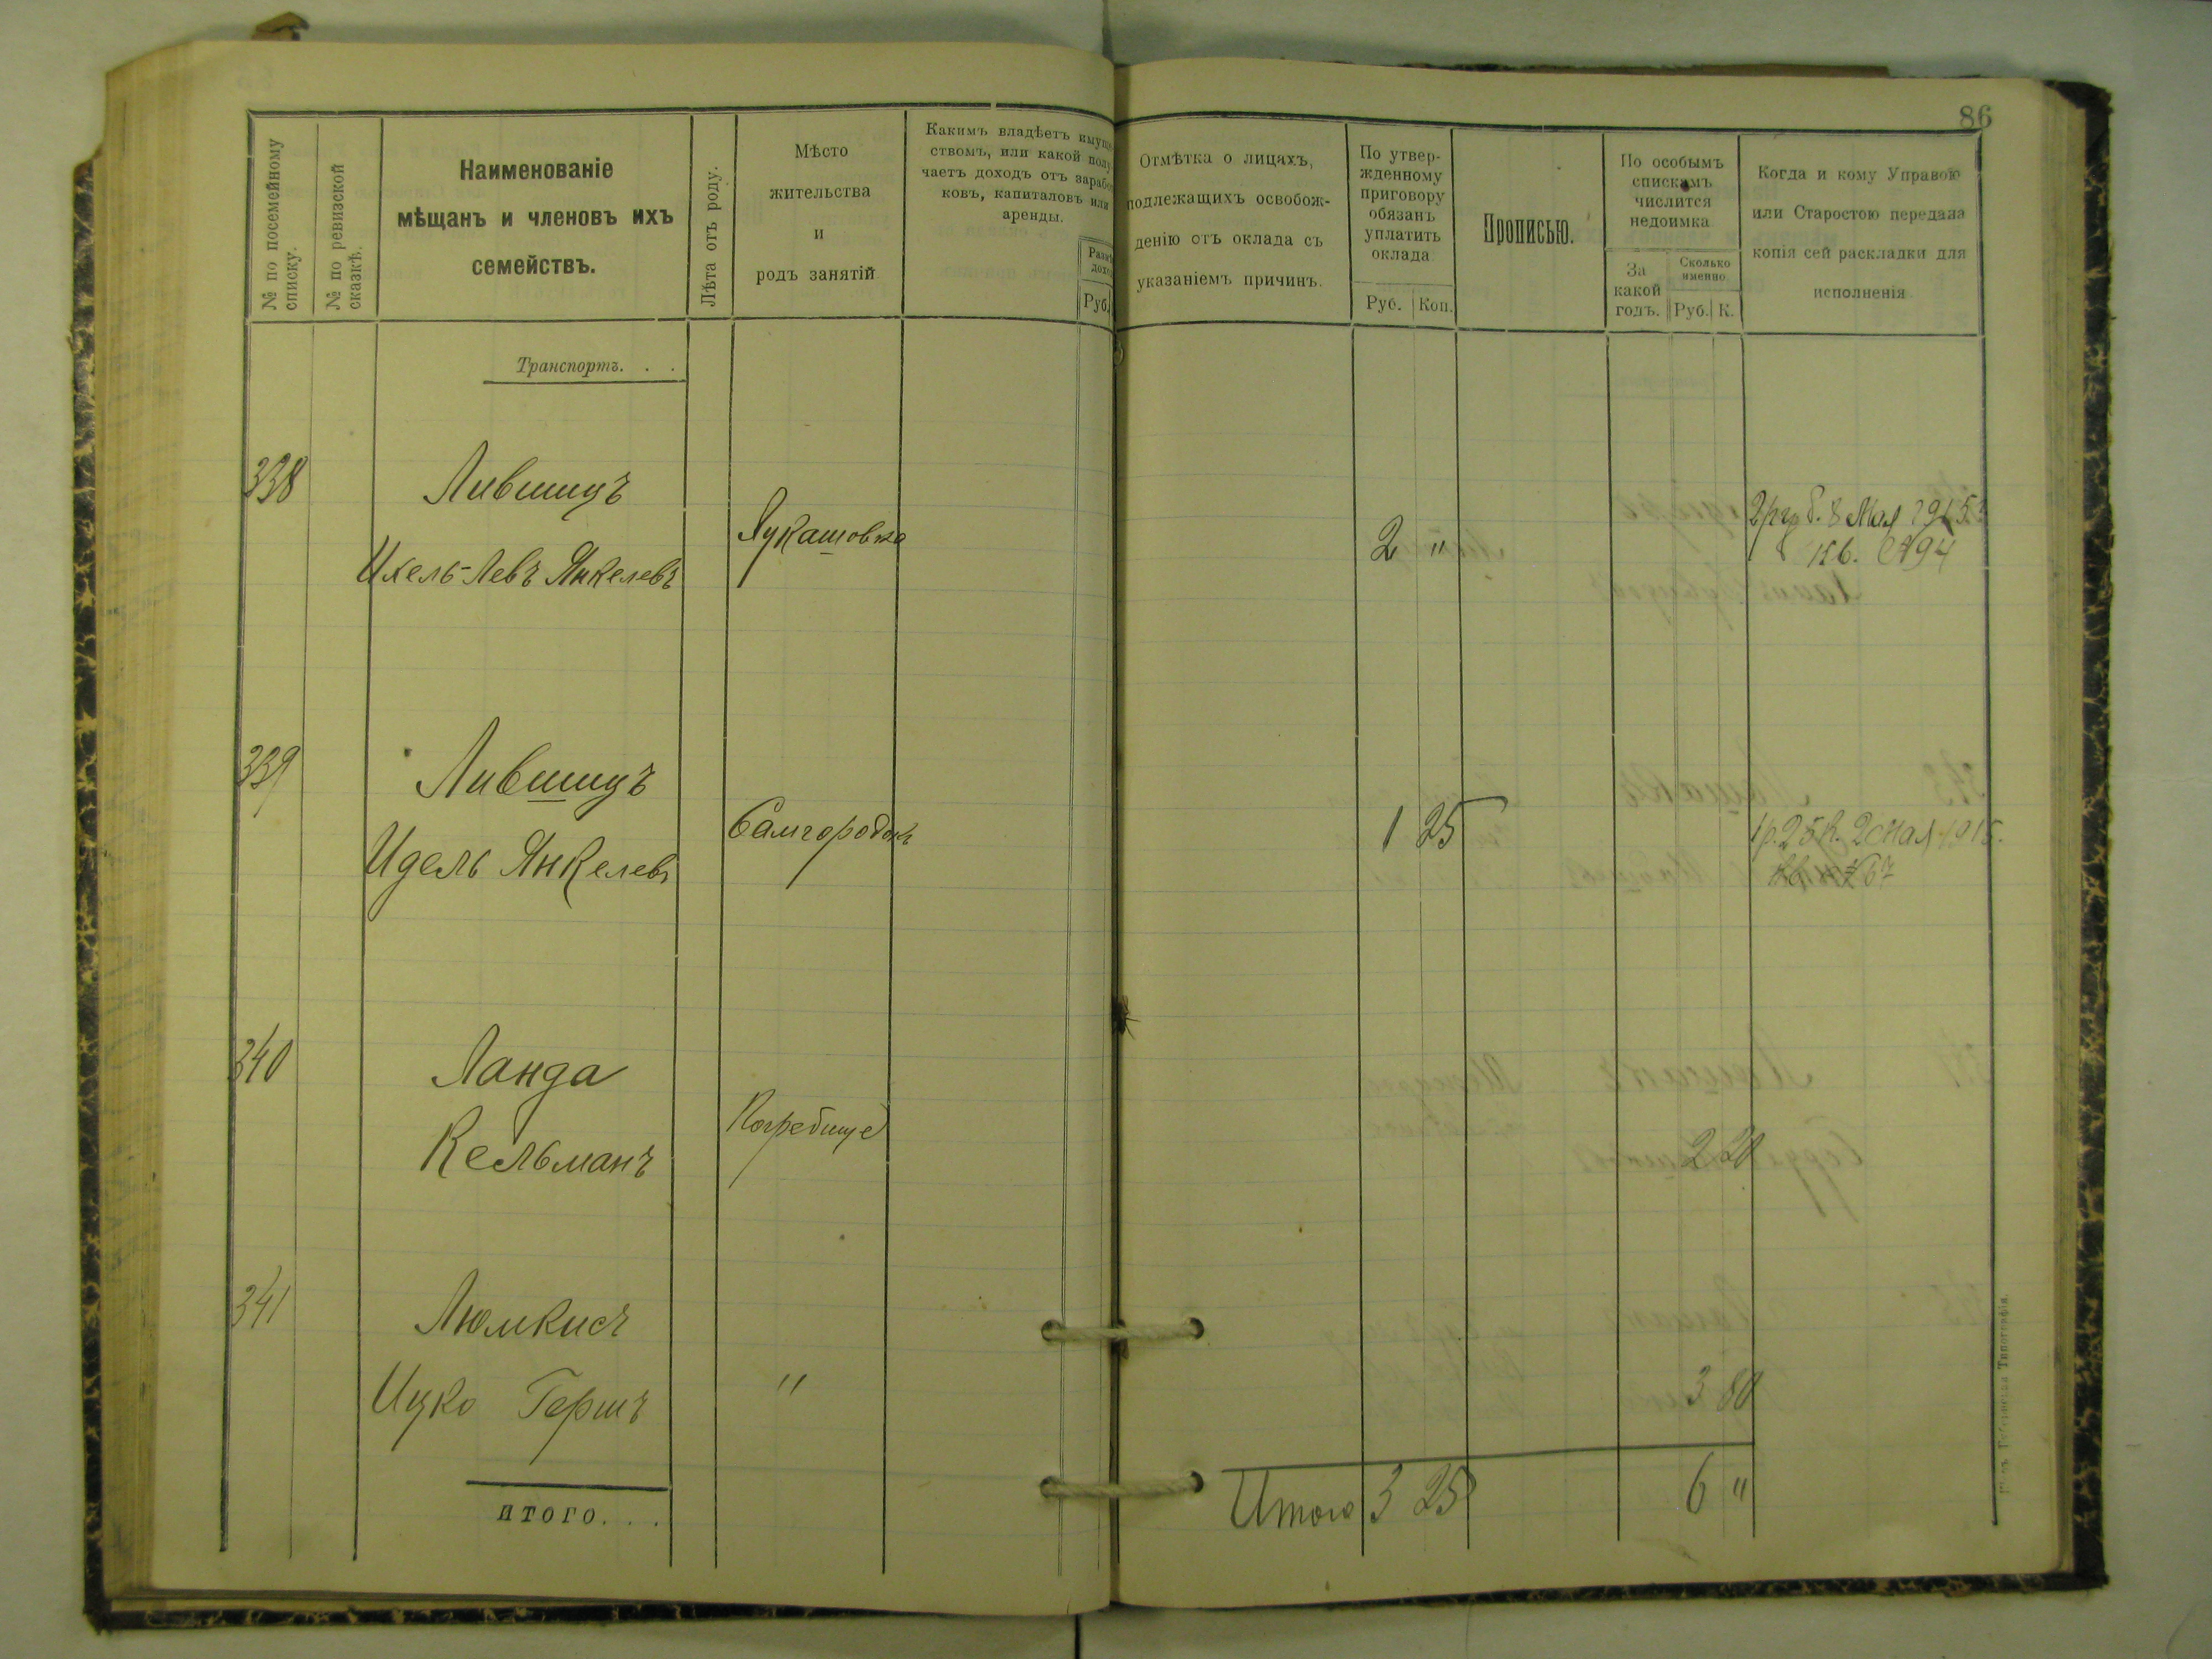 86
№ по посемейному
списку.
№ по ревизской
сказкѣ.
Наименованіе
мѣщанъ и членовъ ихъ
семействъ.
Лѣта отъ роду.
Мѣсто
жительства
и
родъ занятій
Какимъ владѣетъ имуще
ствомъ, или какой полу
чаетъ доходъ отъ зарабо
ковъ, капиталовъ или
аренды.
Размѣ
дохо
Руб.
Отмѣтка о лицахъ,
подлежащихъ освобож-
денію отъ оклада съ
указаніемъ причинъ.
По утвер-
жденному
приговору
обязанъ
уплатить
оклада
Руб. Коп.
Прописью.
По особымъ
спискамъ
числится
недоимка
За
какой
годъ.
Сколько
именно
Руб. К.
Когда и кому Управою
или Старостою передана
копія сей раскладки для
исполненія
Транспортъ. . .
338
Лившицъ
Ихель-Левъ Янкелевъ
Лукашовка
2 "
8 Мая 1915
кв. №94
339
Лившицъ
Идель Янкелевъ
Самгородокъ
1 25
1р. 25 к. 2 Мая 1915.
67
340
Ланда
Кельманъ
Погребище
2 20
341
Люмкисъ
Ицко Гершъ
"
3 80
итого. . .
Итого 3 25
6 "